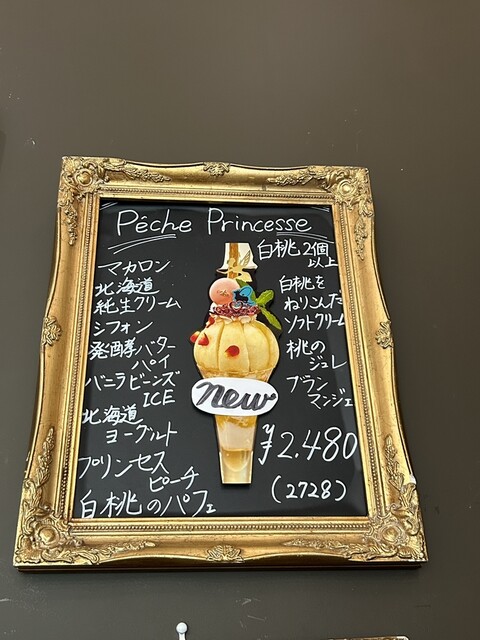 Pêche Princesse
マカロン
北海道
純生クリーム
シフォン
発酵バター
パイ
バニラビーンズ
ICE
北海道
ヨーグルト
プリンセス
ピーチ
白桃のパフェ
白桃2個
以上
白桃を
ねりこんだ
ソフトクリーム
桃の
ジュレ
ブラン
マンジェ
new
¥2.480
(2728)